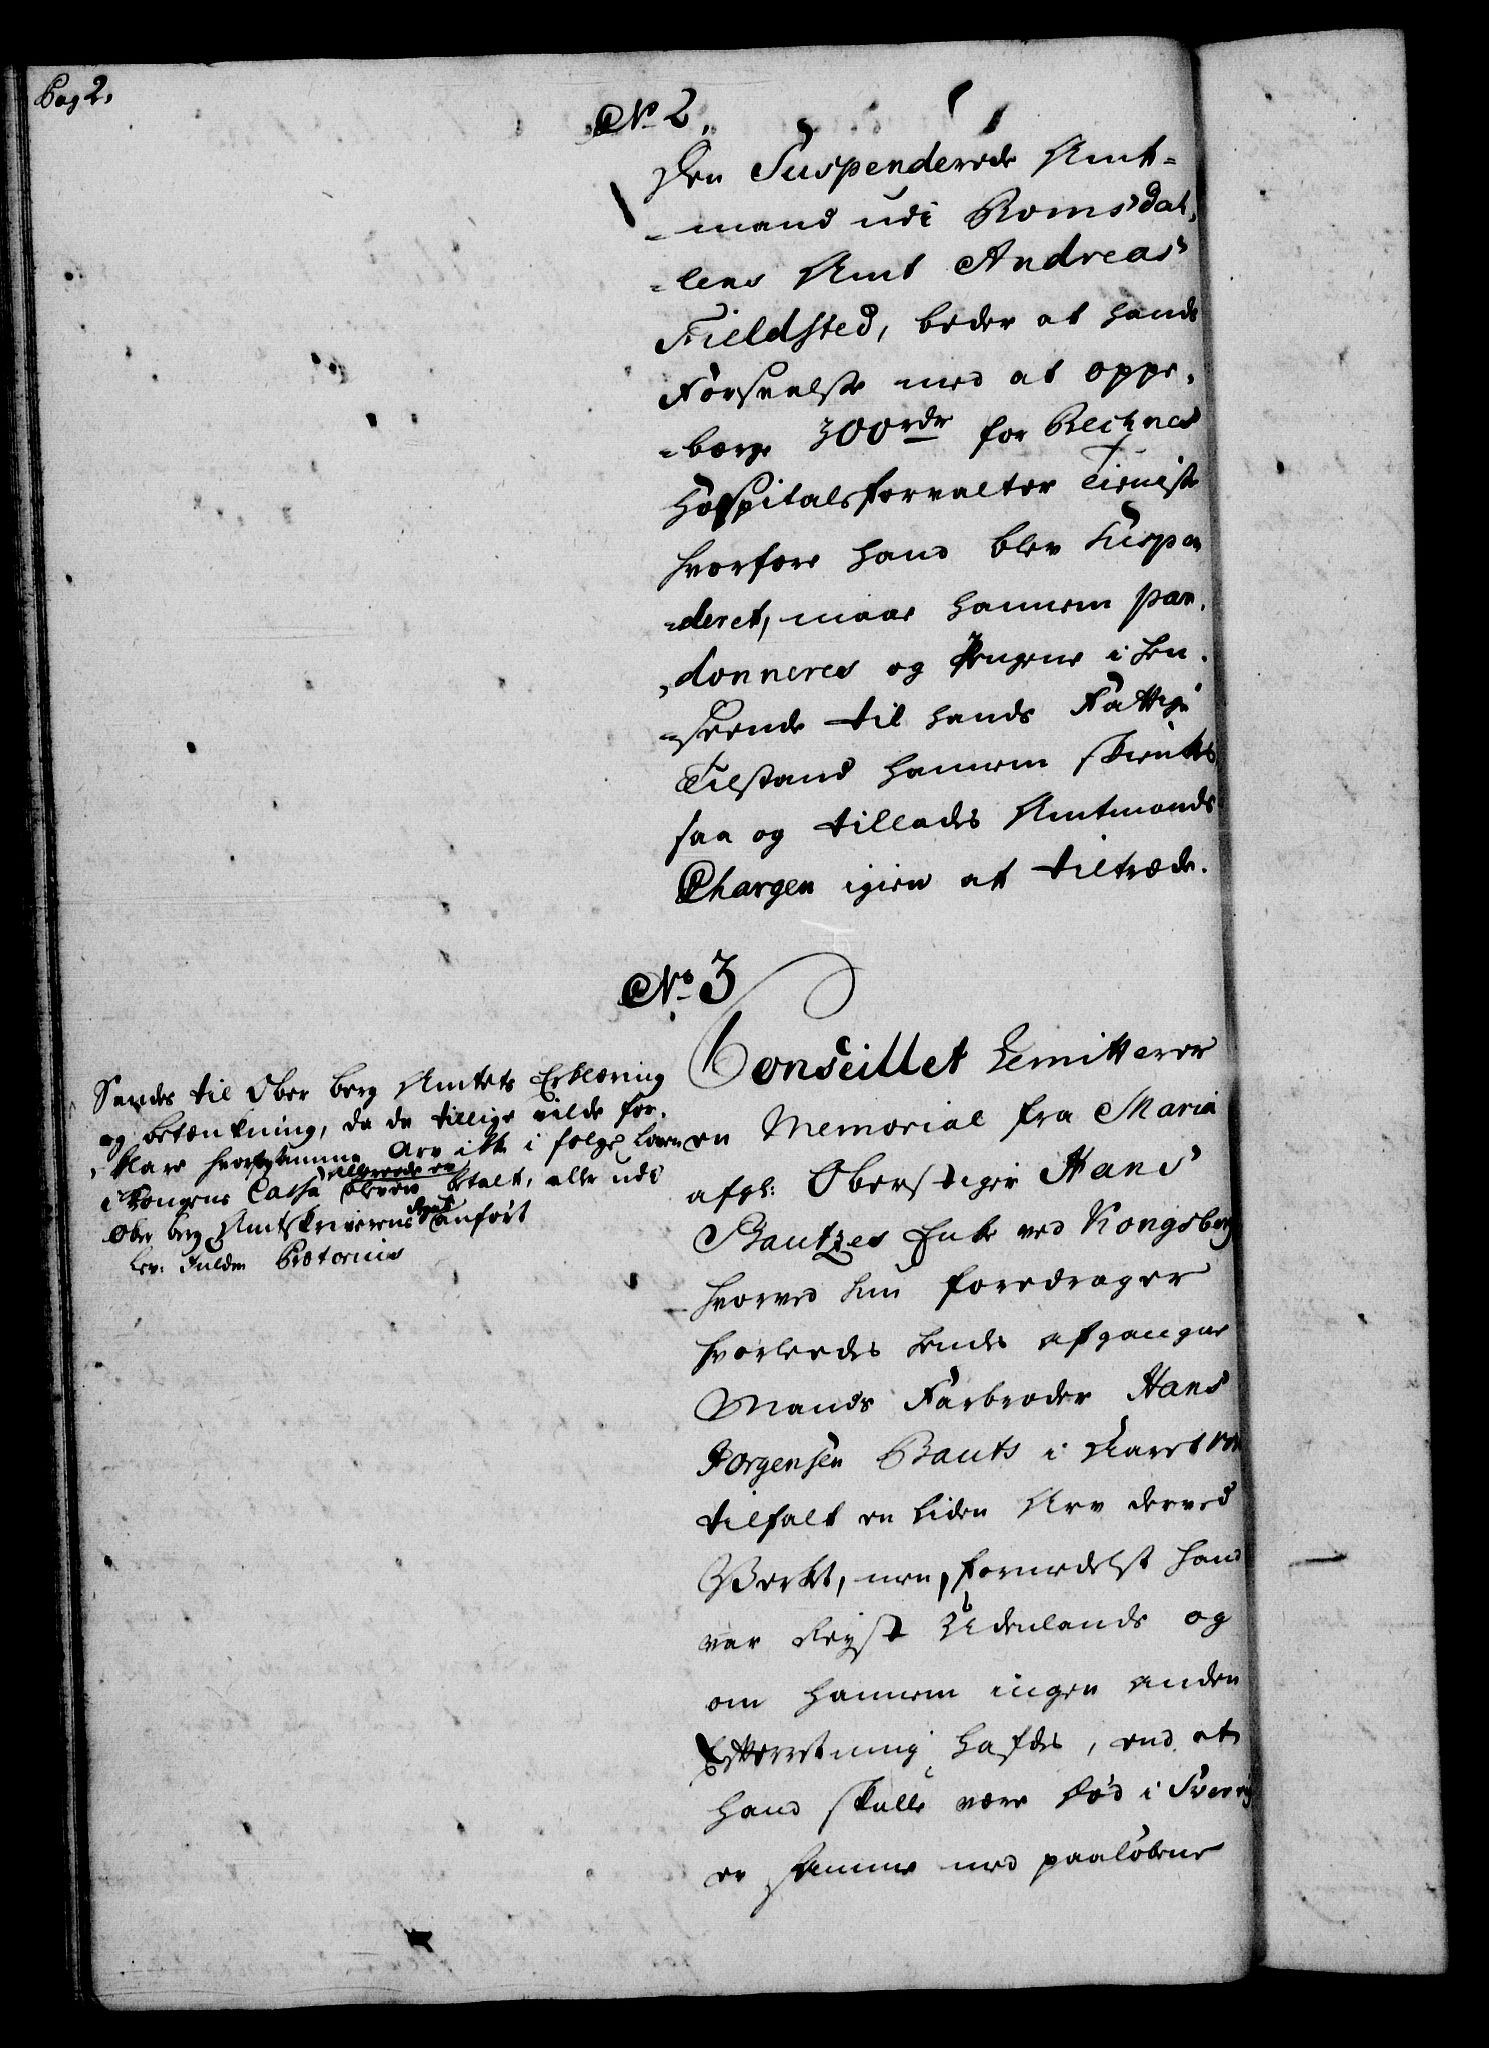 Pag 2.
No 2.
Den Suspenderede Amt-
-mand udi Romsdal,
-lens Amt Andreas
Fieldsted, beder at hands
Forseelse med at oppe,
-børge 300 rdr for Reitznes
Hospitalsforvalter Tieniste
hvorfore hand blev Suspen
-deret, maae hannem par,
,donneres og Pengene i hen,
-seende til hands Fattige
Tilstand hannem skienkes
saa og tillades Amtmands
Chargen igien at tiltræde.
No 3
Conseillet Remitterer
en Memorial fra Maria
afgl: Oberstiger Hans
Bautzes Enke ved Kongsberg
hvorved hun foredrager
hvorledes hendes afgangne
Mands Farbroder Hans
Jørgensen Bauts i Aaret
tilfalt en liden Arv derved
Verket, men formedelst hand
var Reyst Udenlands og
om hannem ingen anden
Efterretning hafdes, end at
hand skulle være død i Sverrig
er samme med paaløbene
Sendes til Ober berg Amtets Erklæring
og betænkning, da de tillige vilde for,
,klare hvorf samme Arv ikke i følge Loven
allereede er
i Kongens Cassa bleven betalt, eller udi
Ober berg Amtskriverens Regnsk: anført
Lev: Pretorius